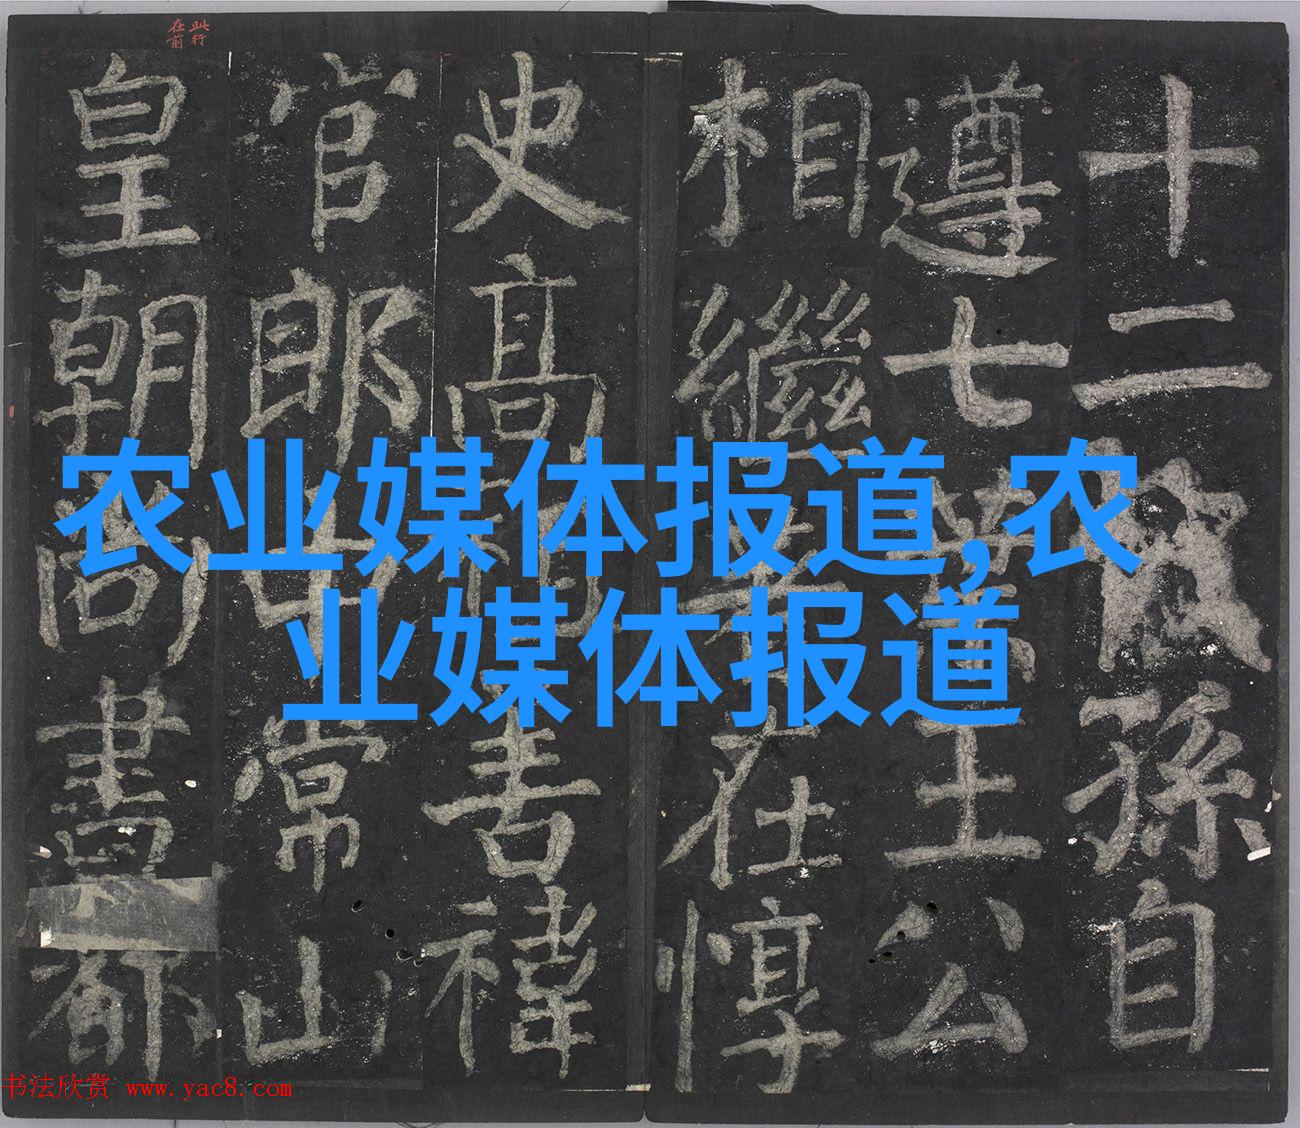 此行
在前
十二孫自
遵七王公
相繼在惇
史高禕
官郎中常山
皇朝尚書都
农业媒体报道,农
业媒体报道
书法欣赏 www.yac8.com